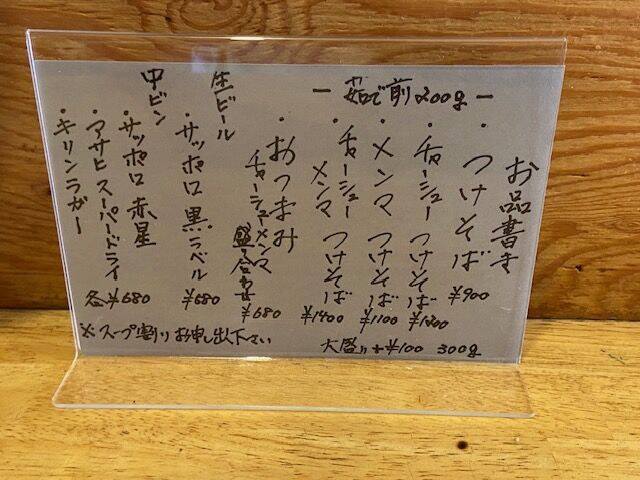 お品書き
ー 茹で前200g ー
・つけそば ¥900
・チャーシューつけそば ¥1200
・メンマつけそば ¥1100
・チャーシューメンマつけそば ¥1400
・おつまみ
チャーシューメンマ盛り合わせ ¥680
生ビール
・サッポロ黒ラベル ¥680
中ビン
・サッポロ赤星
・アサヒスーパードライ
・キリンラガー
各¥680
大盛り+¥100 300g
※スープ割りお申し出下さい